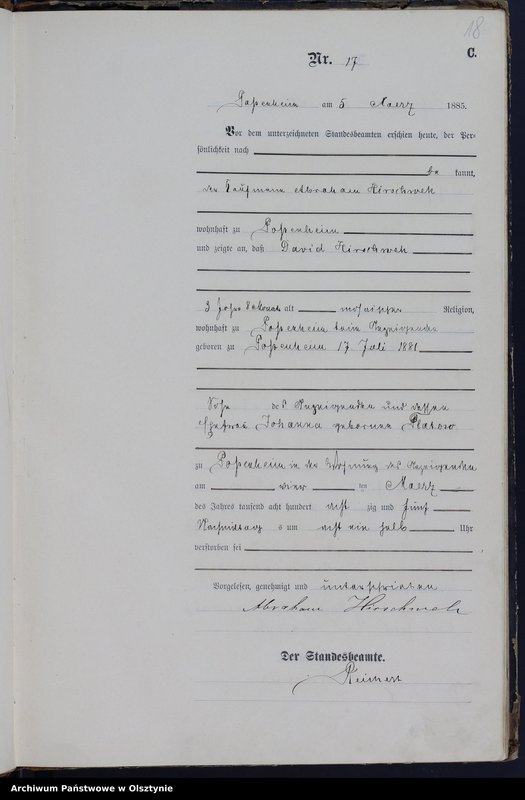 18
C.
Nr. 17
Possenheim am 5 Maerz 1885.
Vor dem unterzeichneten Standesbeamten erschien heute, der Per-
sönlichkeit nach
be kannt,
der Kaufmann Abraham Hirschweh
wohnhaft zu Possenheim
und zeigte an, daß David Hirschweh
3 Jahre 8 Monate alt mosaischer Religion,
wohnhaft zu Possenheim beim Anzeigenden
geboren zu Possenheim 17 Juli 1881
Sohn des Anzeigenden und dessen
Ehefrau Johanna geborenen
zu Possenheim in der Wohnung des Anzeigenden
am vier ten Maerz
des Jahres tausend acht hundert acht zig und fünf
Nachmittag s um acht ein halb Uhr
verstorben sei
Vorgelesen, genehmigt und unterschrieben
Abraham Hirschweh
Der Standesbeamte.
Reichert
Archiwum Państwowe w Olsztynie